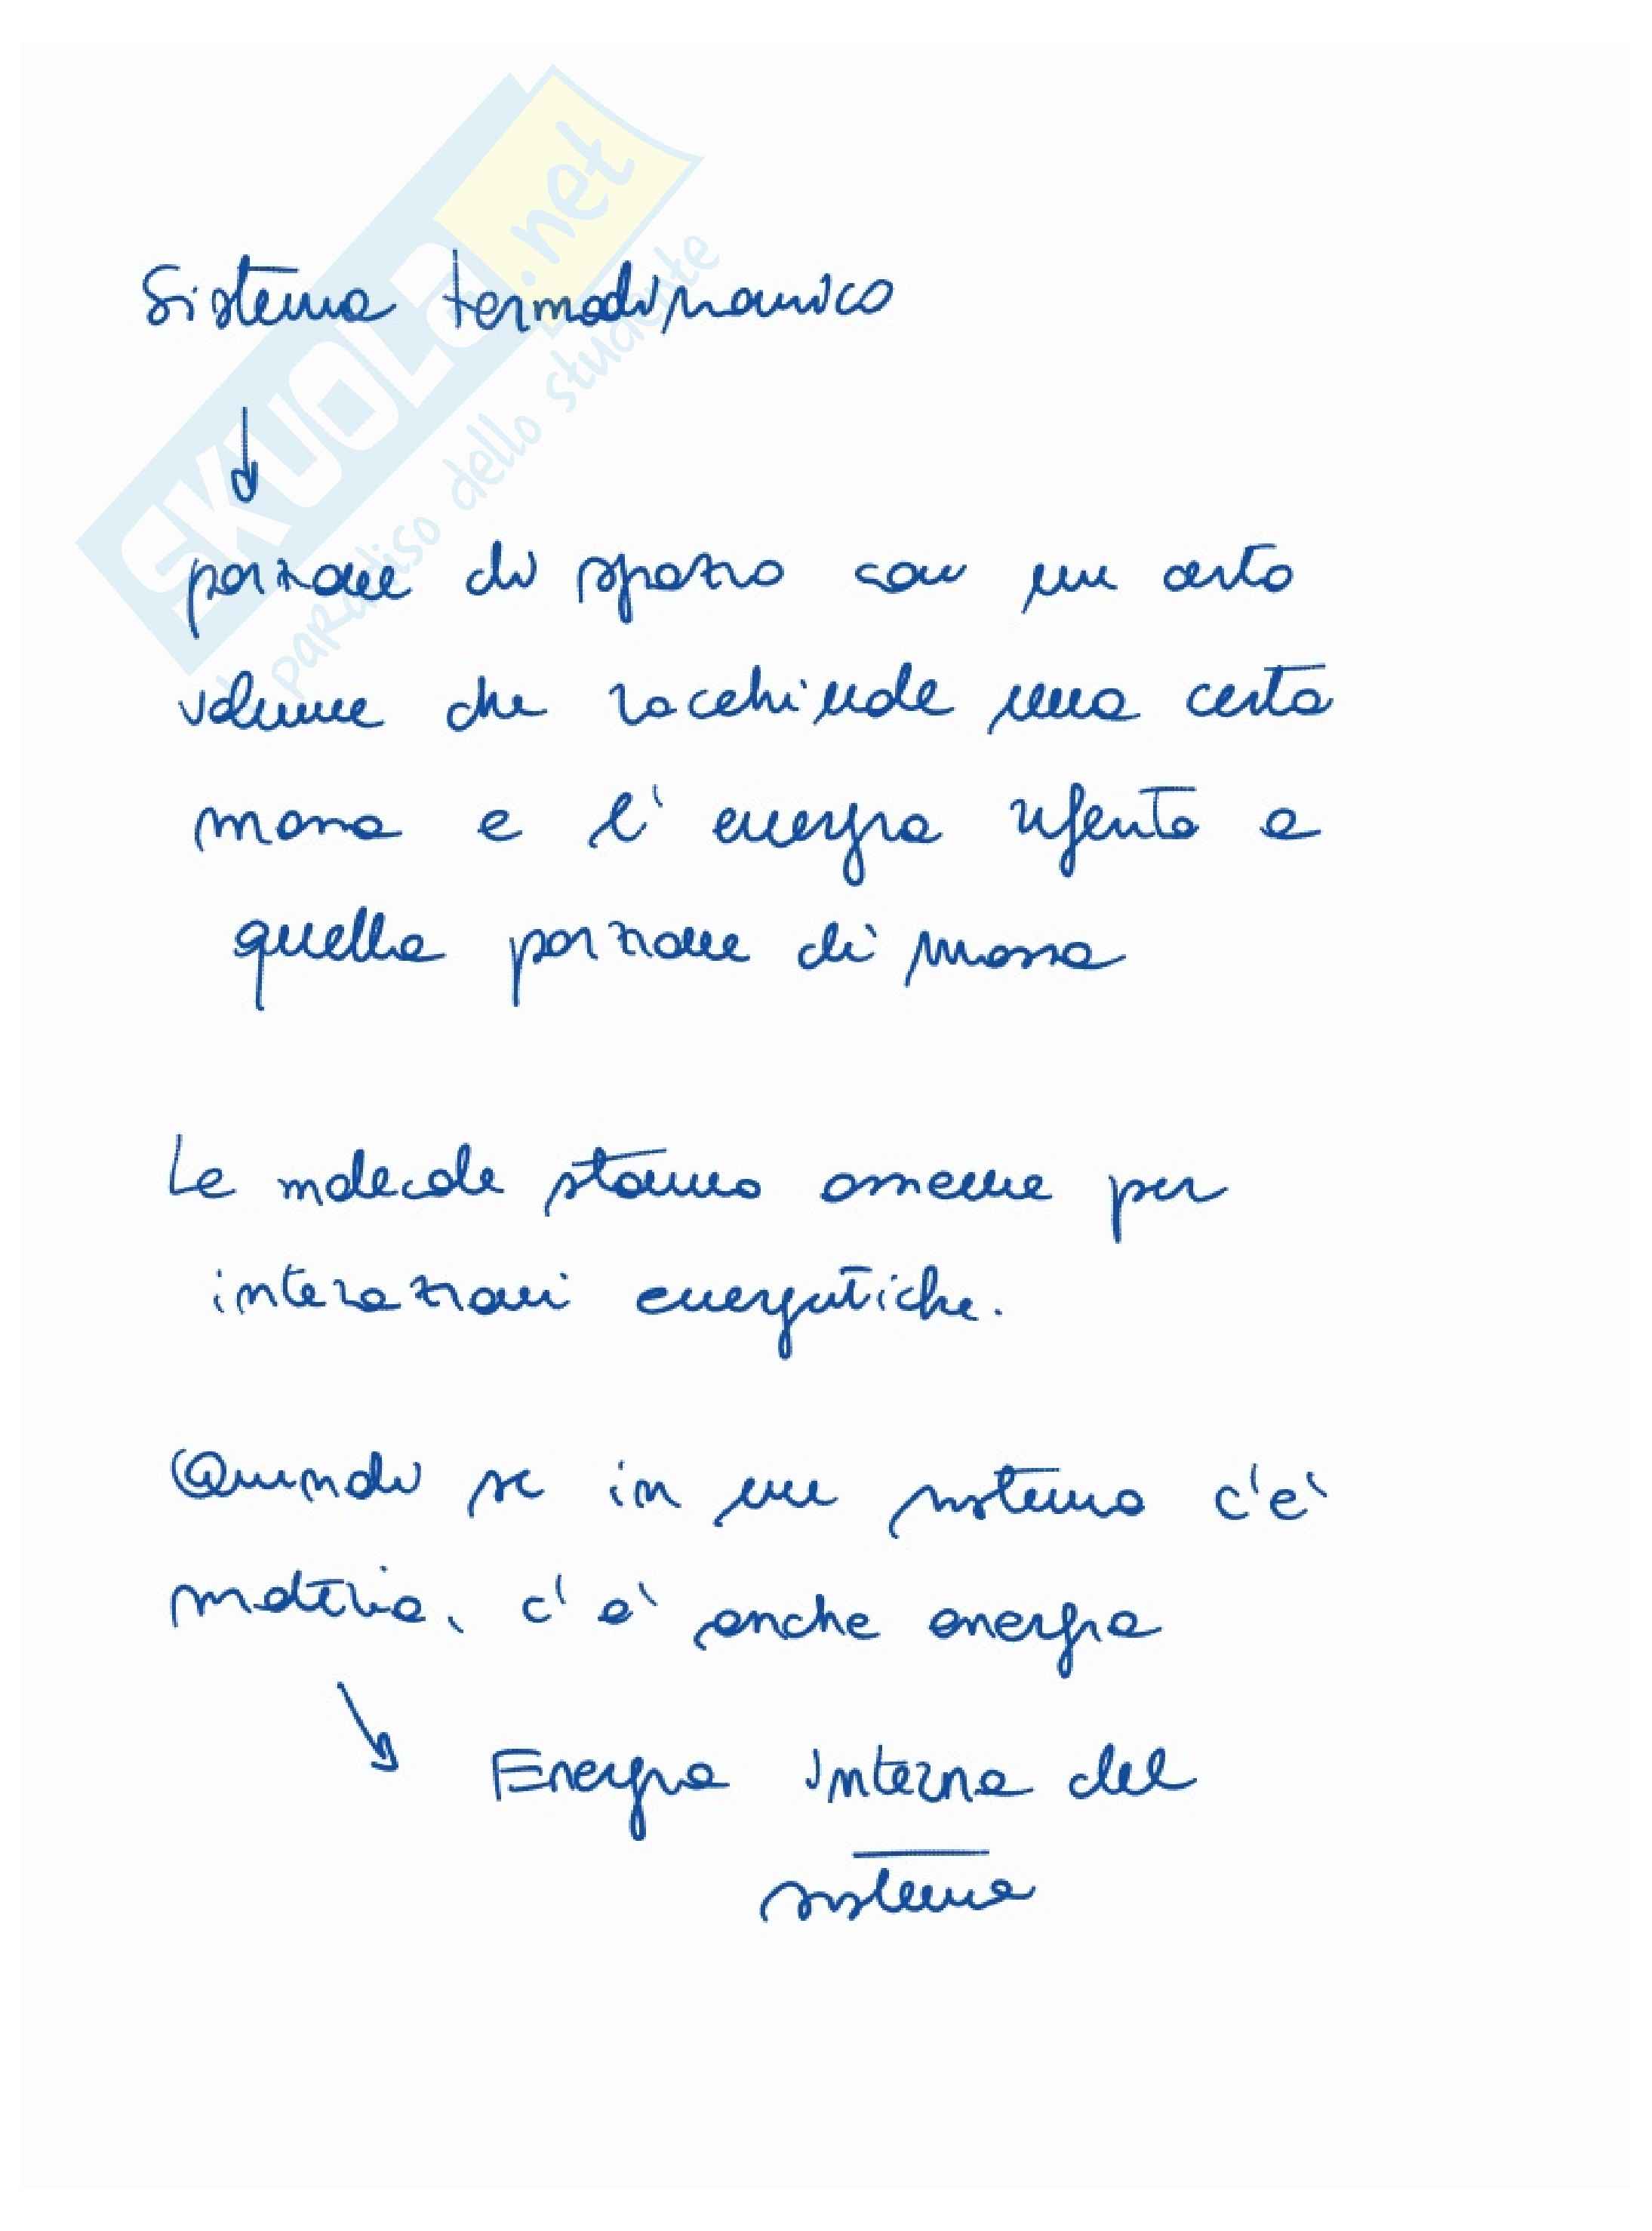 SKUOLA.net
paradiso dello studente
Sistema termodinamico
porzione di spazio con un certo
volume che racchiude una certa
massa e l'energia riferita a
quella porzione di massa
Le molecole stanno assieme per
interazioni energetiche.
Quindi se in un sistema c'è
materia, c'è anche energia
Energia interna del
sistema